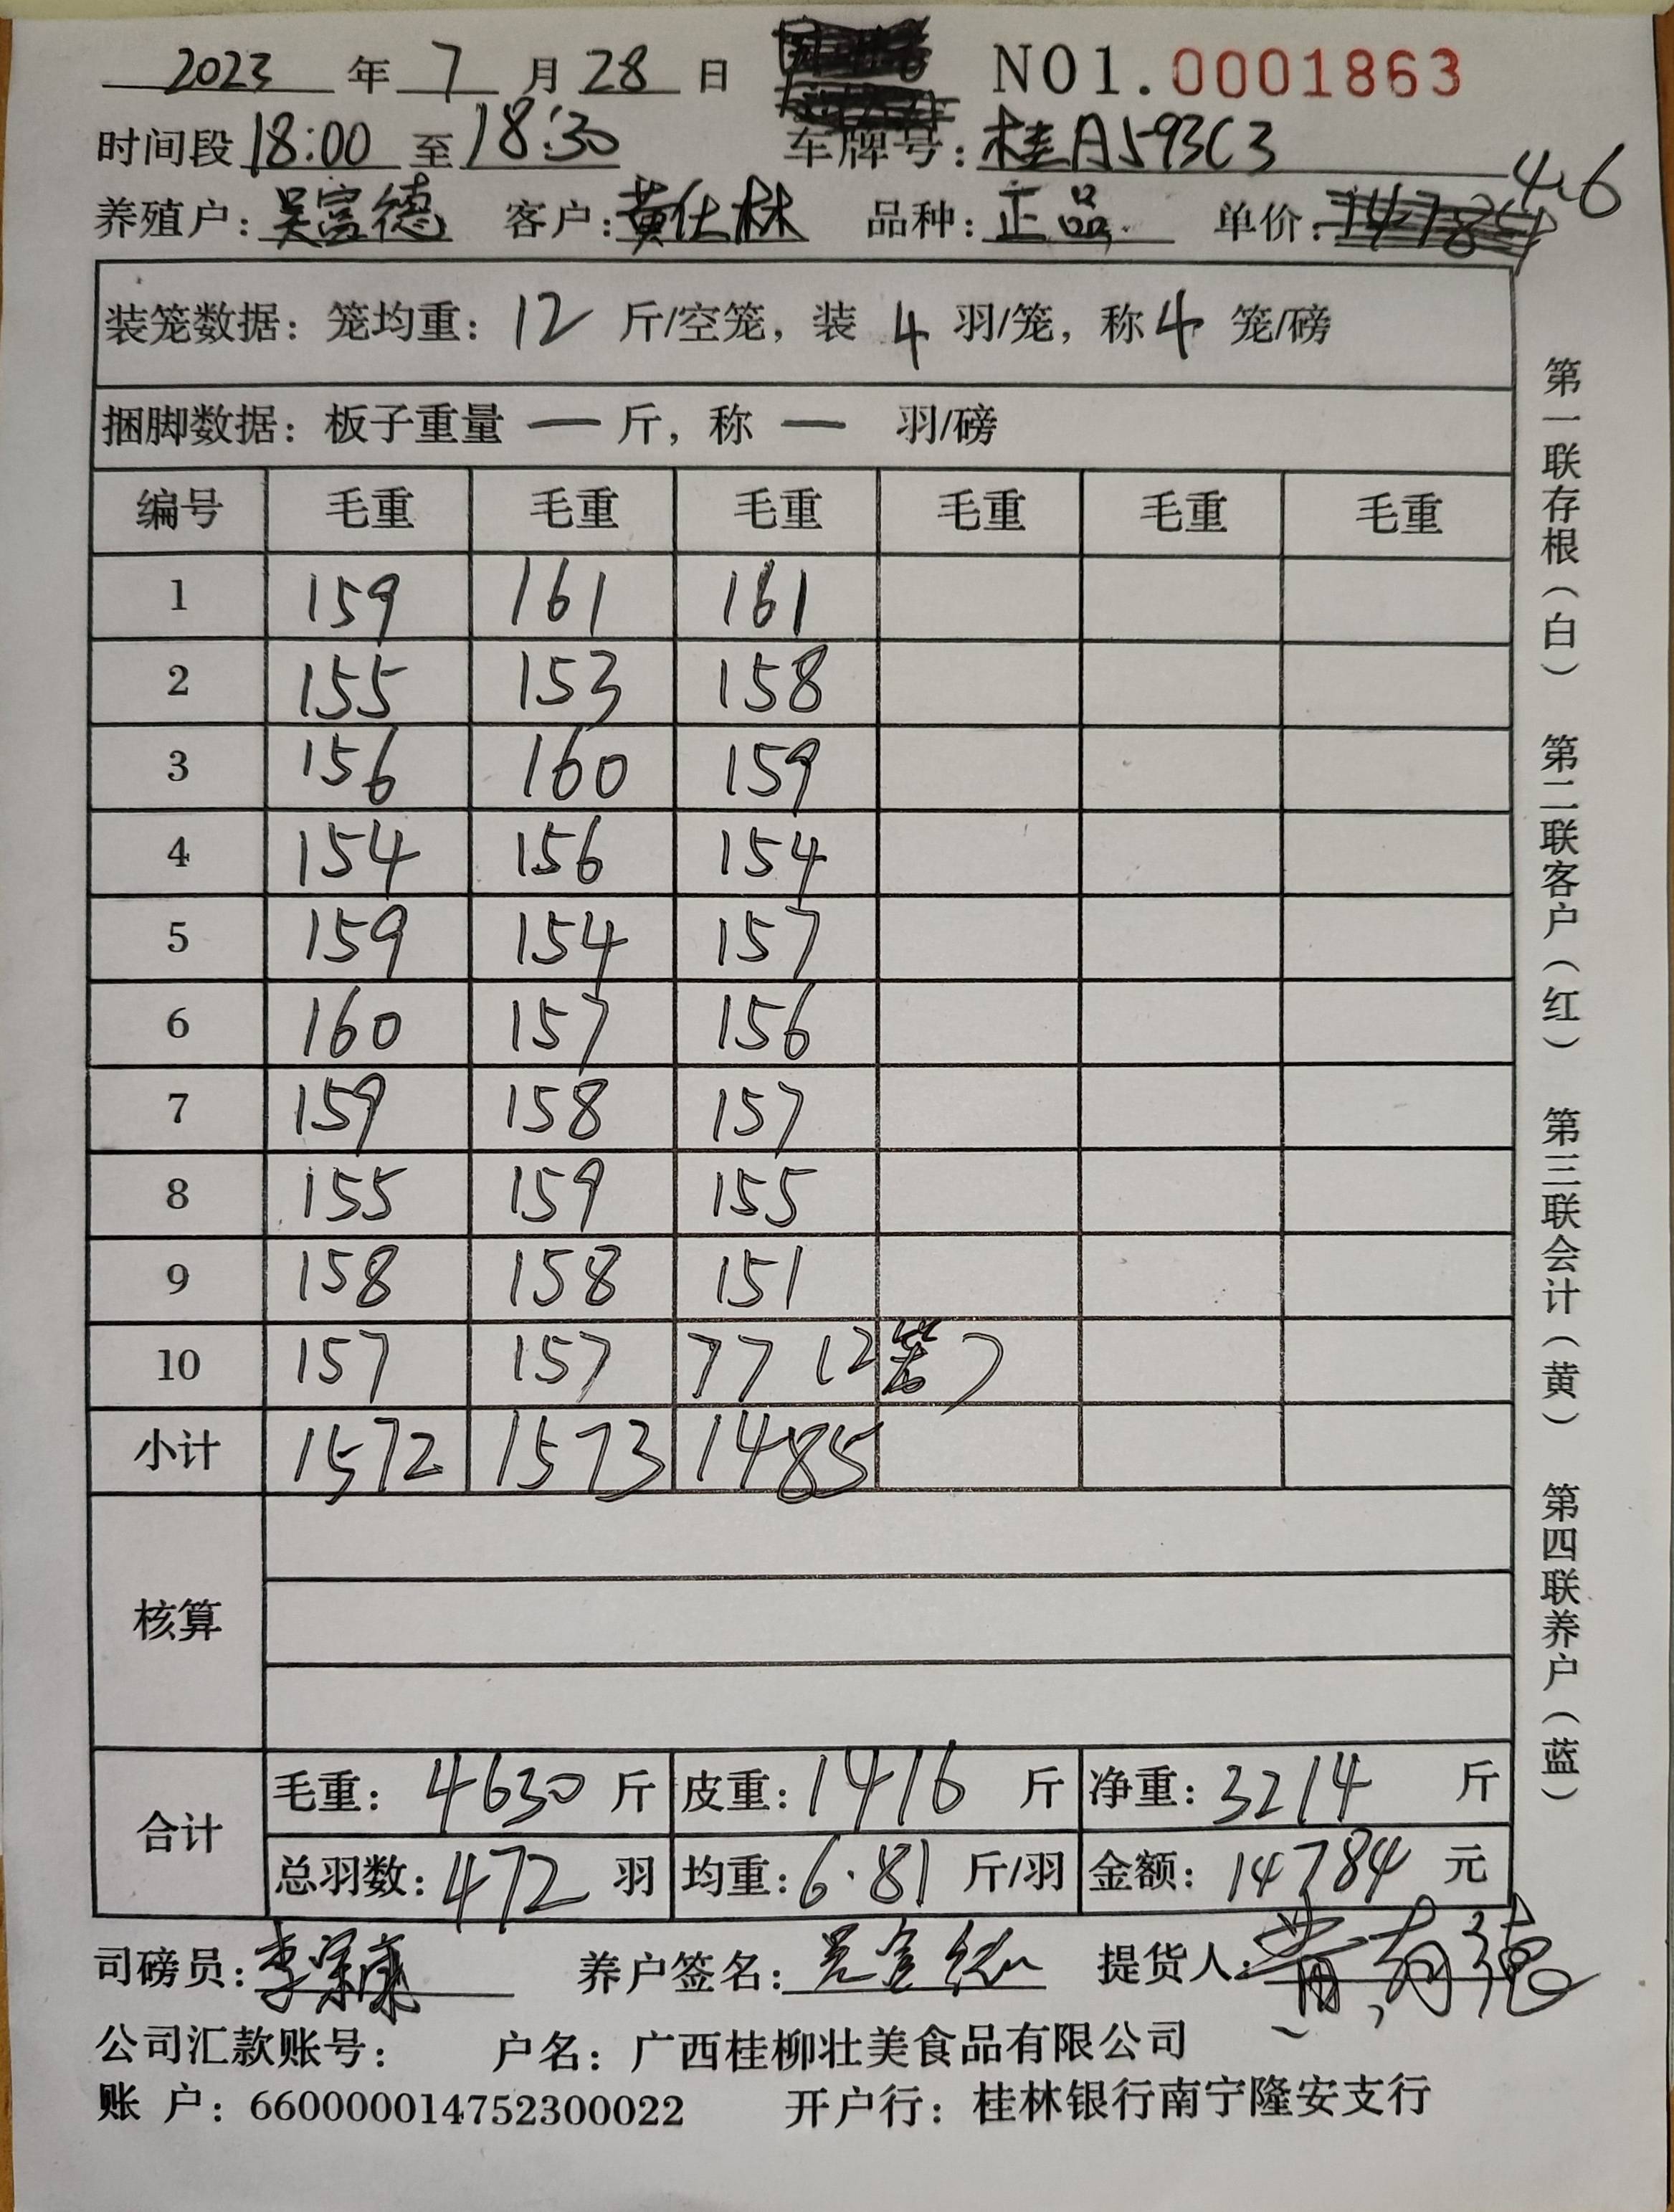 2023 年 7 月 28 日 NO1.0001863
时间段 18:00 至 18:30 车牌号: 桂A593C3
养殖户: 吴富德 客户: 黄仕林 品种: 正品 单价: 4.6
装笼数据: 笼均重: 12 斤/空笼, 装 4 羽/笼, 称 4 笼/磅
捆脚数据: 板子重量 — 斤, 称 — 羽/磅
编号 毛重 毛重 毛重 毛重 毛重 毛重
1 159 161 161
2 155 153 158
3 156 160 159
4 154 156 154
5 159 154 157
6 160 157 156
7 159 158 157
8 155 159 155
9 158 158 151
10 157 157 77 (2笼)
小计 1572 1573 1485
核算
合计
毛重: 4630 斤 皮重: 1416 斤 净重: 3214 斤
总羽数: 472 羽 均重: 6.81 斤/羽 金额: 14784 元
司磅员: 养户签名: 提货人:
公司汇款账号: 户名: 广西桂柳壮美食品有限公司
账 户: 660000014752300022 开户行: 桂林银行南宁隆安支行
第一联存根(白) 第二联客户(红) 第三联会计(黄) 第四联养户(蓝)